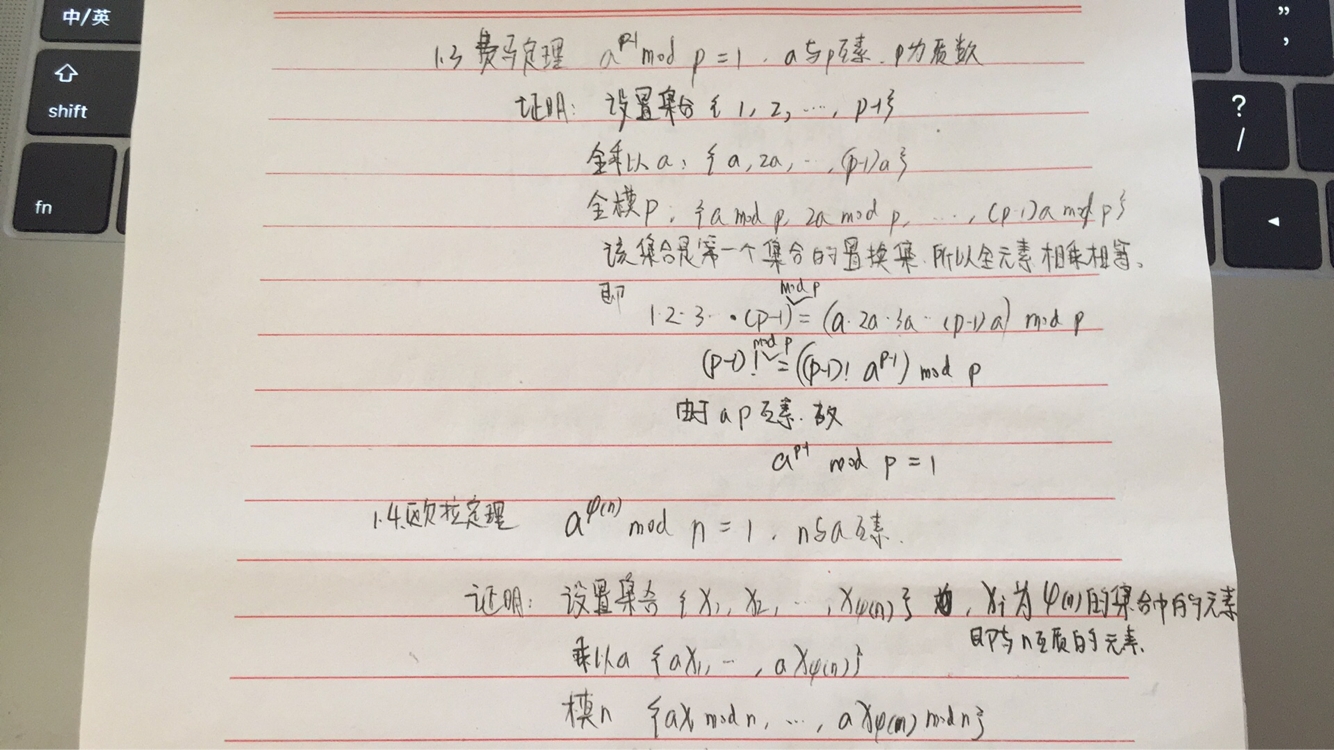 中/英
shift
fn
”
,
?
/
1.3 费马定理 a^{p-1} mod p = 1 . a与p互素. p为质数
证明: 设置集合 { 1, 2, ..., p-1}
全乘以 a: { a, 2a, ..., (p-1)a }
全模 p: { a mod p, 2a mod p, ..., (p-1)a mod p }
该集合是第一个集合的置换集.所以全元素相乘相等。
即
mod p
1·2·3·· ·(p-1) = (a·2a·3a·· (p-1)a) mod p
mod p
(p-1)! = ((p-1)! a^{p-1}) mod p
由于 a p 互素. 故
a^{p-1} mod p = 1
1.4.欧拉定理 a^{φ(n)} mod n = 1 . n与a互素.
证明: 设置集合 { x₁, x₂, ..., x_{φ(n)} } , xᵢ 为 φ(n) 的集合中的元素
即与n互质的元素.
乘以a { ax₁, ..., a x_{φ(n)} }
模n { ax₁ mod n, ..., a x_{φ(n)} mod n }